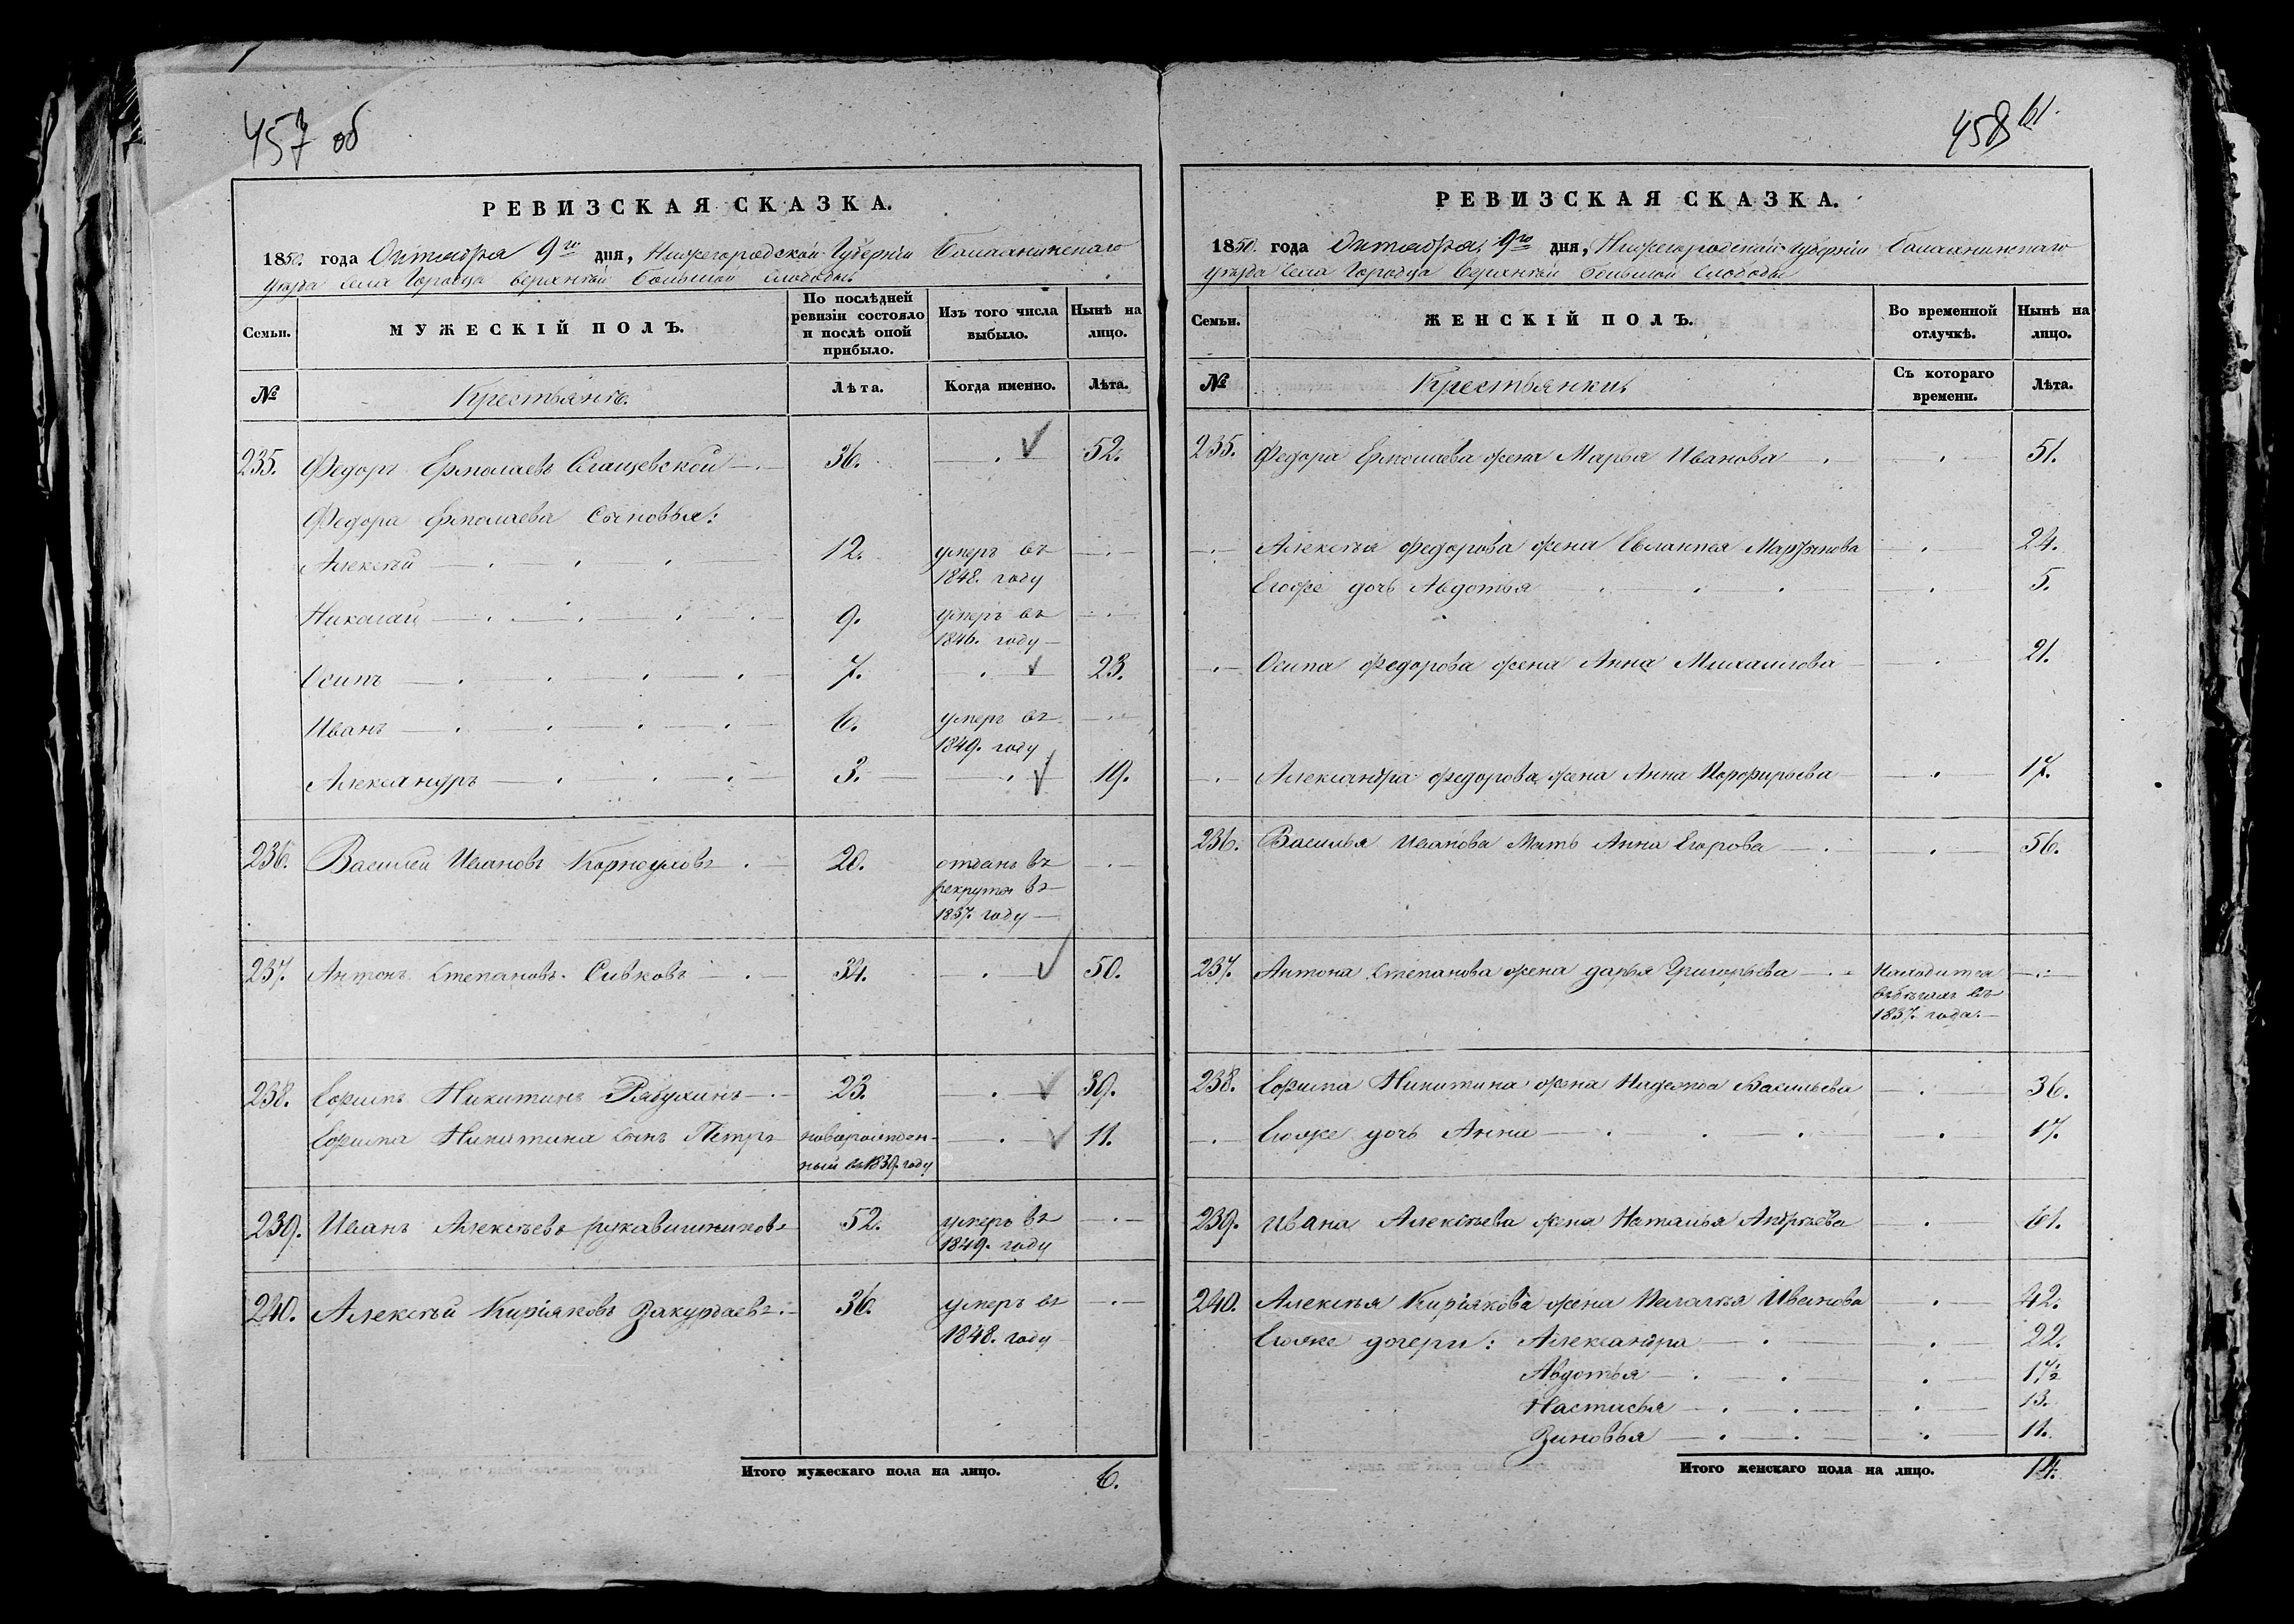 457 об
РЕВИЗСКАЯ СКАЗКА.
1850. года Октября 9го дня, Нижегородской Губернiи Балахнинскаго
уѣзда села Городца верхнѣй большой слободы
Семьи.
МУЖЕСКІЙ ПОЛЪ.
По послѣдней ревизіи состояло и послѣ оной прибыло.
Изъ того числа выбыло.
Нынѣ на лицо.
№ Крестьянъ. Лѣта. Когда именно. Лѣта.
235. Федоръ Ермолаевъ 36. 52.
Федора Ермолаева Сыновья:
Алексѣй 12. умеръ въ
1848. году
Николай 9. умеръ въ
1846. году
Осипъ 7. 23.
Иванъ 6. умеръ въ
1849. году
Александръ 3. 19.
236. Василей Ивановъ Карноуховъ 20. отданъ въ
рекруты въ
1837. году
237. Антонъ Степановъ Сивковъ 34. 50.
238. Ефимъ Никитинъ Рябухинъ 23. 39.
Ефима Никитина сынъ Петръ новорожден- 11.
ный въ 1839. году
239. Иванъ Алексѣевъ рукавишниковъ 52. умеръ въ
1849. году
240. Алексѣй Кирiяковъ Закурдаевъ 36. умеръ въ
1848. году
Итого мужескаго пола на лицо. 6.
458 61.
РЕВИЗСКАЯ СКАЗКА.
1850. года Октября 9го дня, Нижегородской Губернiи Балахнинскаго
уѣзда села Городца верхнѣй большой слободы
Семьи.
ЖЕНСКІЙ ПОЛЪ.
Во временной отлучкѣ.
Нынѣ на лицо.
№ Крестьянки. Съ котораго времени. Лѣта.
235. Федора Ермолаева жена Марья Иванова 51.
Алексѣя Федорова жена 24.
Егоже дочь Авдотья 5.
Осипа Федорова жена Анна Михаилова 21.
Александра Федорова жена Анна Порфирьева 17.
236. Василья Иванова Мать Анна Егорова 56.
237. Антона Степанова жена дарья Григорьева Находится
въ бѣгахъ съ
1837. года.
238. Ефима Никитина жена Надежда Васильева 36.
Егоже дочь Анна 17.
239. Ивана Алексѣева жена Наталья Андрѣева 61.
240. Алексѣя Кирiякова жена Пелагѣя Иванова 42.
Егоже дочери: Александра 22.
Авдотья 17½
Настасья 13.
Зиновья 11.
Итого женскаго пола на лицо. 14.